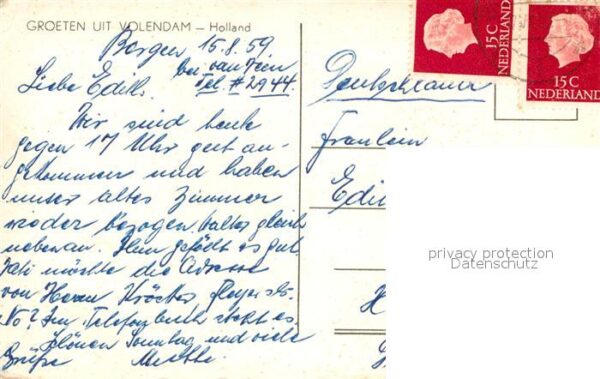 GROETEN UIT VOLENDAM — Holland
Bergen 15.8.59
bei van
Tel. #2944
Liebe Edith.
Wir sind heute
gegen 17 Uhr gut an-
gekommen und haben
unser altes Zimmer
wieder bezogen. Walter gleich
nebenan. Ihm gefällt es gut.
möchte die Adresse
von Herrn
No? Im Telefonbuch steht es
Schönen Sonntag und viele
Grüße
Deutschland
Fräulein
Edi
H
15C
NEDERLAND
15C
NEDERLAND
privacy protection
Datenschutz